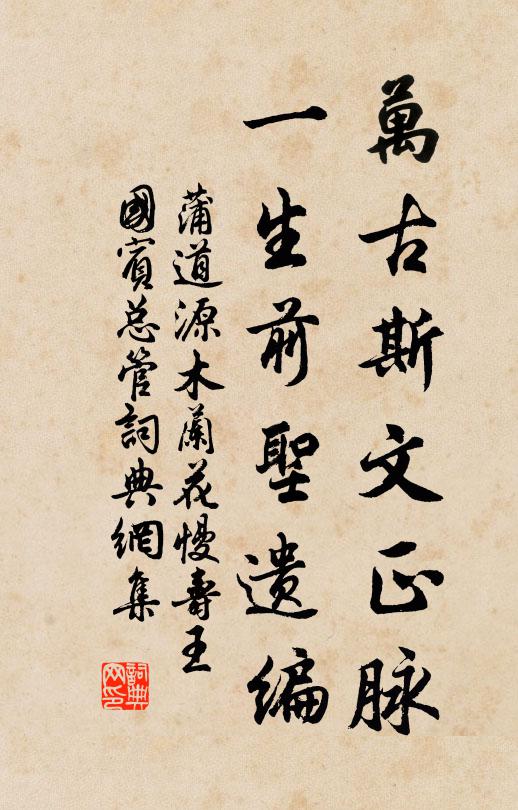 萬古斯文正脉
一生前聖遺編
蒲道源木蘭花慢壽王
國賓总管詞典網集
詞典網印